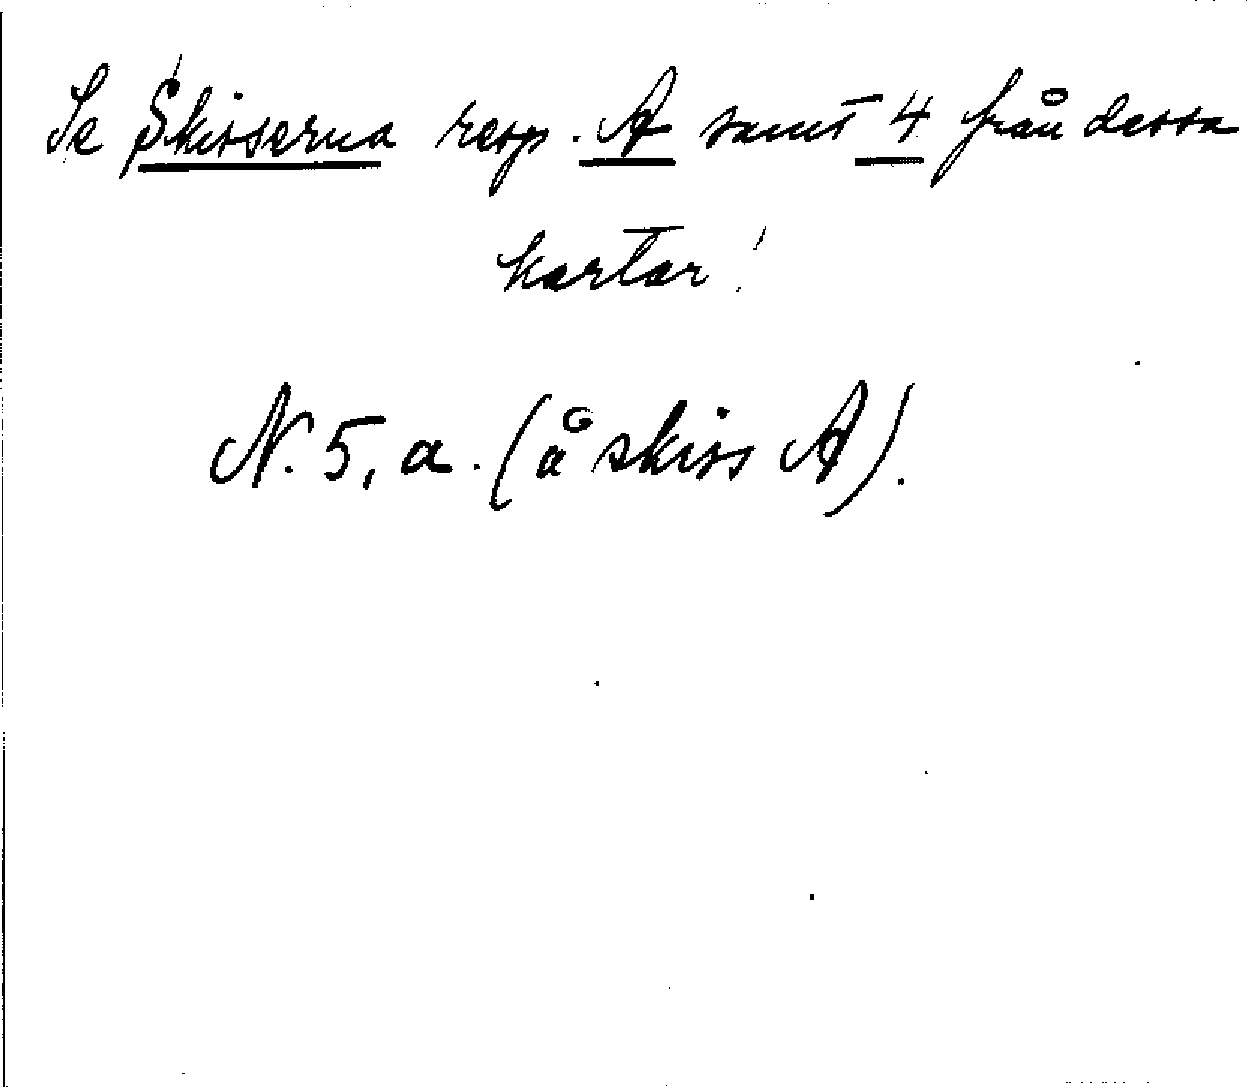 Se Skisserna resp. A samt 4 från dessa
kartor!
N. 5, a. (å skiss A).